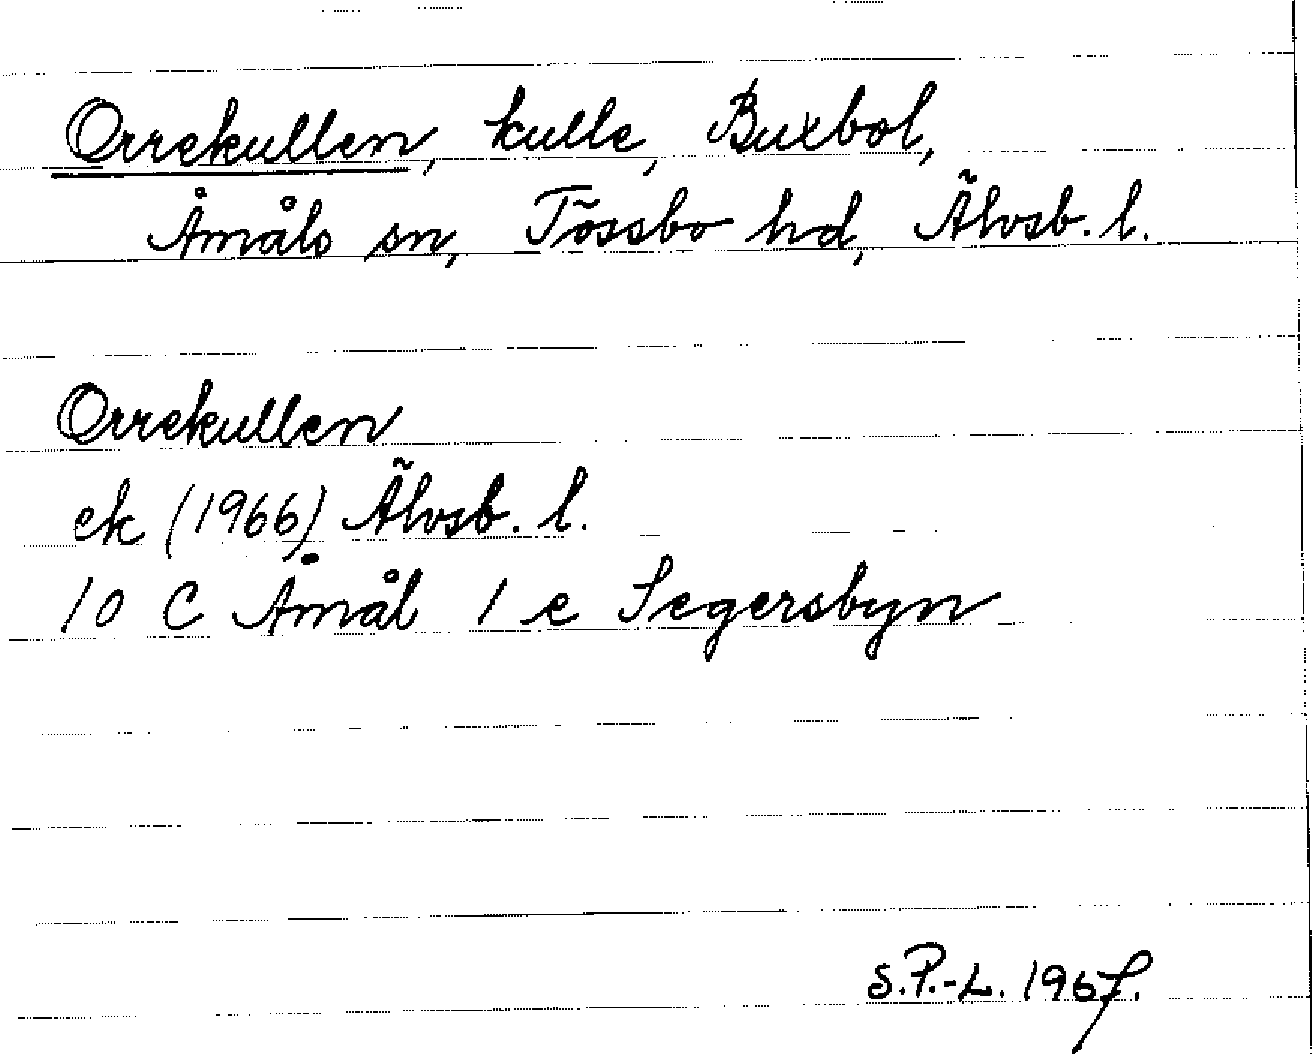 Orrekullen, kulle, Buxbol,
Åmåls sn, Tössbo hd, Älvsb. l.
Orrekullen
ek (1966) Älvsb. l.
10 C Åmål 1 e Segersbyn
S.P.-L. 1967.